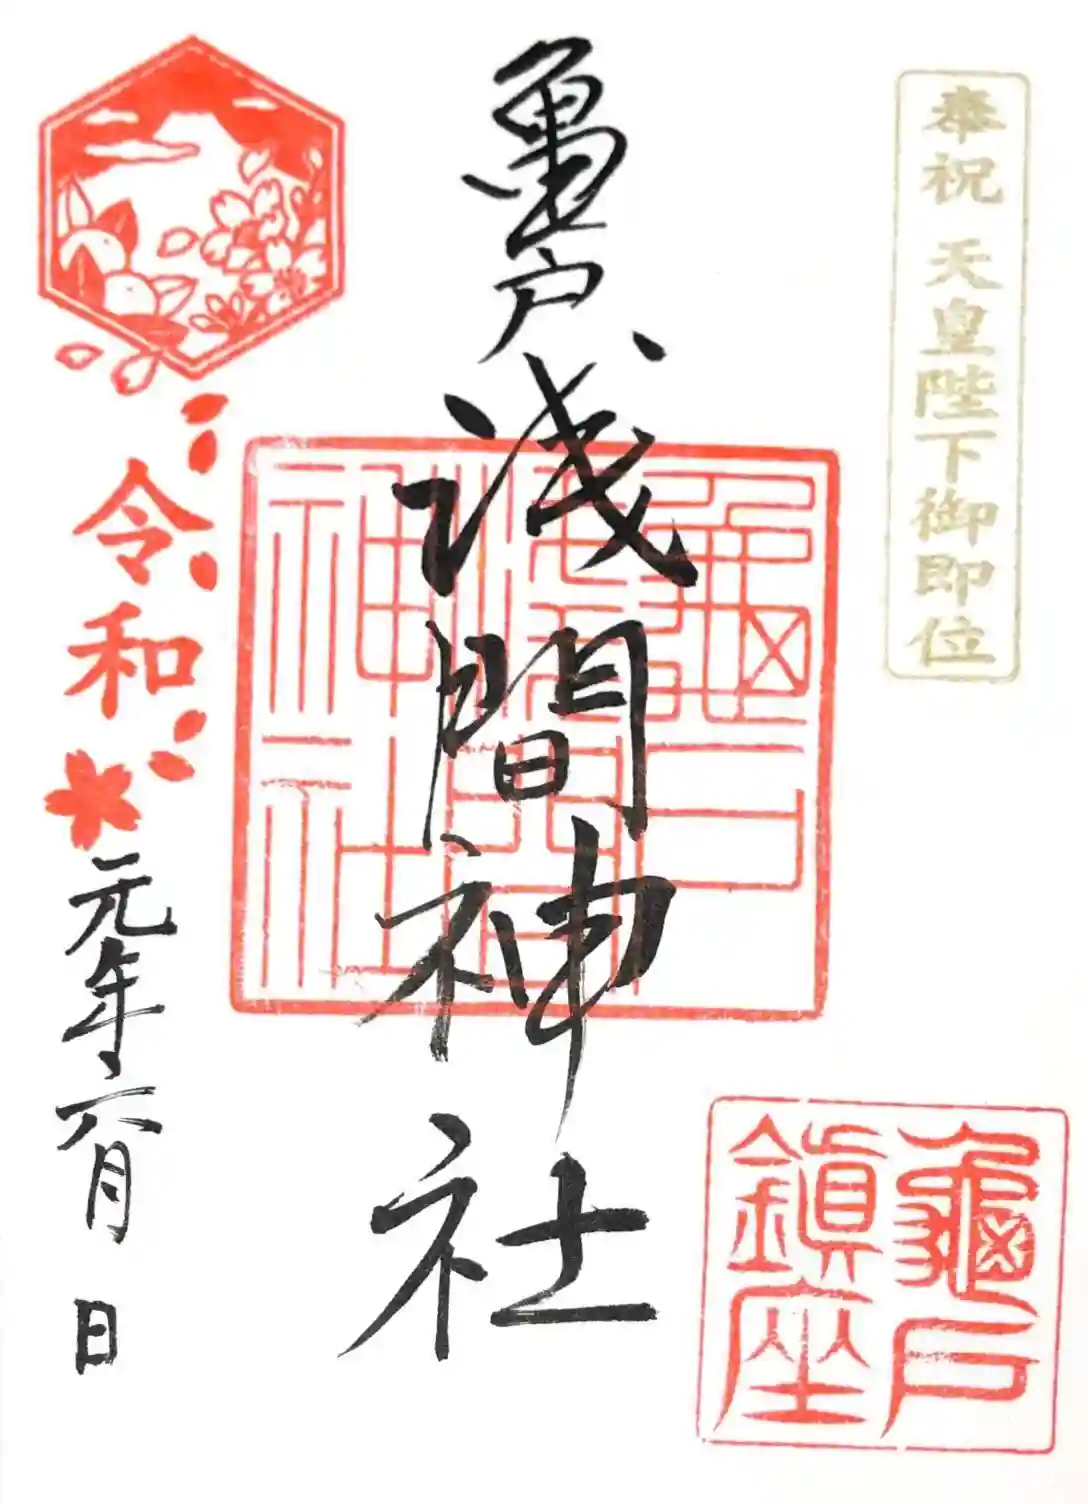 奉祝 天皇陛下御即位
亀戸浅間神社
龜戸
淺間
神社
龜戸
鎮座
令和
元年六月 日